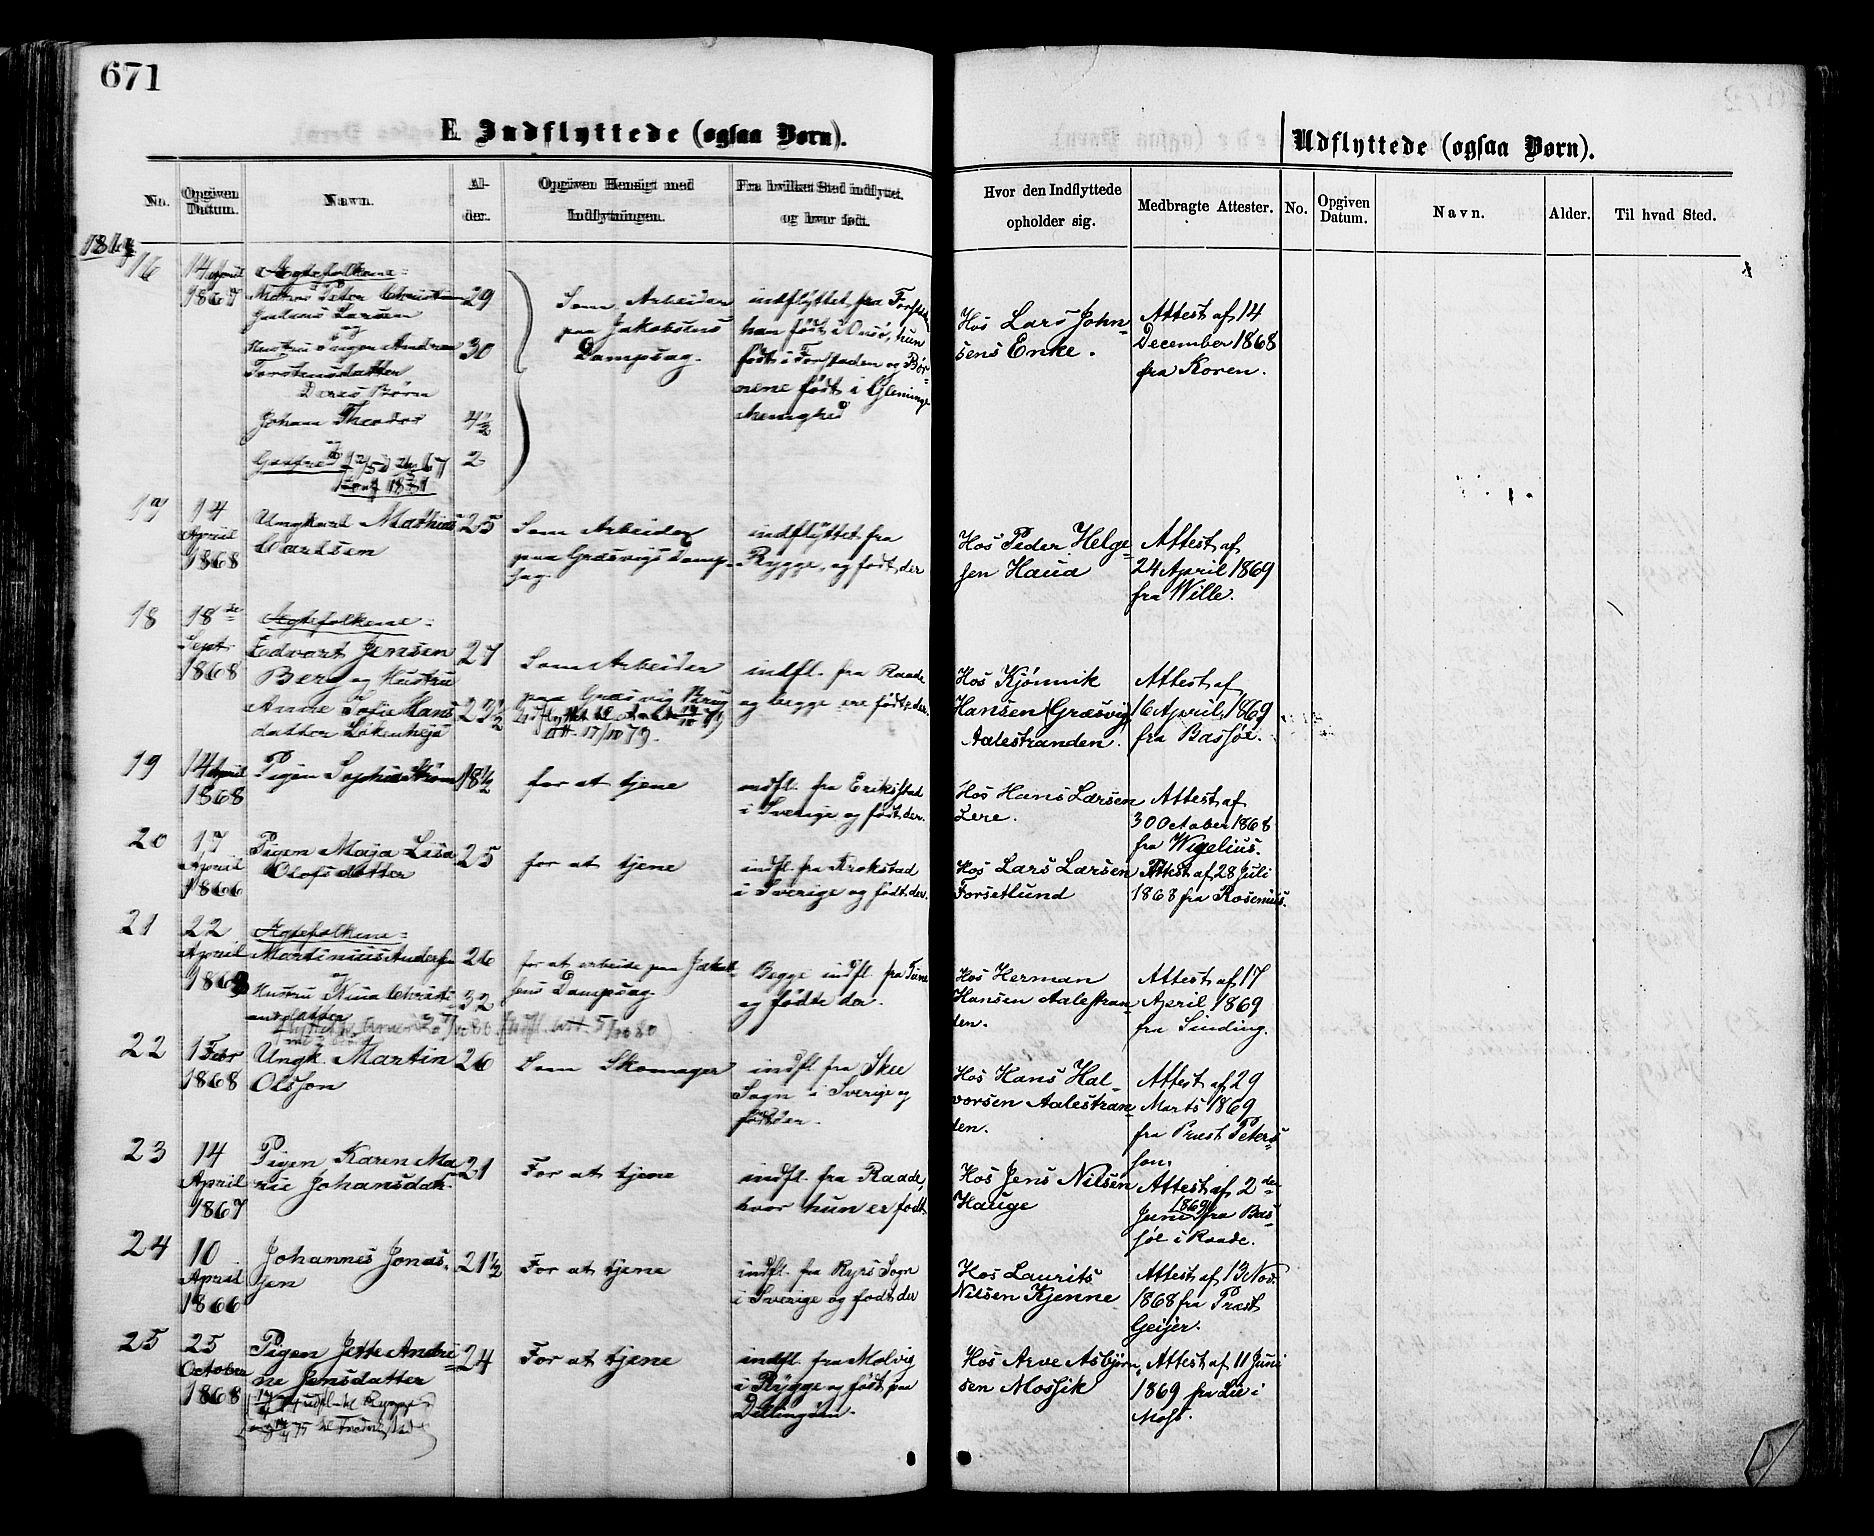 671
E Indflyttede (ogsaa Børn).
Udflyttede (ogsaa Børn).
No.
Opgiven Datum.
Navn.
Al-
der.
Opgiven Hensigt med
Indflytningen.
Fra hvilket Sted indflyttet,
og hvor født.
Hvor den Indflyttede
opholder sig.
Medbragte Attester.
No.
Opgiven
Datum.
Navn.
Alder.
Til hvad Sted.
16
14 April
1867
Ægtefolkene:
Peter Christian
Larsen
29
og
Hustru Inger Andrea
30
Torstensdatter
Deres Børn
Johan Theodor
4½
og
2
Som Arbeider
paa Jakobsens
Dampsag.
indflyttet fra
han født i Onsø, hun
født i Forstaden og Bør-
nene født i Glemminge
Menighed
Hos Lars John-
sens Enke.
Attest af 14
December 1868
fra Koren.
17
14
April
1868
Ungkarl Mathias
25
Carlsen
Som Arbeider
paa Græsvigs Damp-
sag.
indflyttet fra
Rygge, og født der
Hos Peder Helge-
sen Haua
Attest af
24 April 1869
fra Wille.
18
18de
Sept
1868
Ægtefolkene:
Edvart Jensen
27
Berg og Hustru
Anne Sofie Hans-
23½
datter Løkenheja
Som Arbeider
paa Græsvig Brug
17/10 79.
indfl. fra Raade
og begge ere født der.
Hos Kjønnik
Hansen (Græsvig)
Aalestranden.
Attest af
16 April 1869
fra Bassøe.
19
14 April
1868
Pigen Sophia Strøm
18½
for at tjene
indfl. fra Erikstad
i Sverige og født der.
Hos Hans Larsen
Lere.
Attest af
30 October 1868
fra Wigelius.
20
17
April
1866
Pigen Maja Lisa
25
Olofsdatter
for at tjene
indfl. fra Krokstad
i Sverige og født der.
Hos Lars Larsen
Forsetlund
Attest af 28 Juli
1868 fra Rosenius.
21
22
April
1868
Ægtefolkene:
Martinius Andersen
26
og
Hustru Nina Christi-
32
ansdatter
for at arbeide paa Jakob-
sens Dampsag.
Begge indfl. fra Tune
og fødte der.
Hos Herman
Hansen Aalestran-
den.
Attest af 17
April 1869
fra Sinding.
22
1 Febr
1868
Ungk. Martin
26
Olsson
Som Skomager
indfl. fra Skee
Sogn i Sverige og
født der.
Hos Hans Hal-
vorsen Aalestran-
den.
Attest af 29
Marts 1869
fra Præst Peters-
son.
23
14
April
1867
Pigen Karen Ma-
21
rie Johansdatr
For at tjene
indfl. fra Raade,
hvor hun er født
Hos Jens Nilsen
Hauge
Attest af 2den
Juni 1869 fra Bas-
søe i Raade.
24
10
April
1866
Johannes Jonas-
21½
sen
For at tjene
indfl. fra Ryrs Sogn
i Sverige og født der
Hos Laurits
Nilsen Kjenne
Attest af 13 Nov.
1868 fra Præst
Geijer.
25
25
October
1868
Pigen Jette Andri-
24
ne Jensdatter
udfl. til Rygge
75 til Fredrikstad
For at tjene
indfl. fra Molvig
i Rygge og født paa
Dillingøen.
Hos Arve Asbjørn-
sen Mossik
Attest af 11 Juni
1869 fra Lie i
Moss.